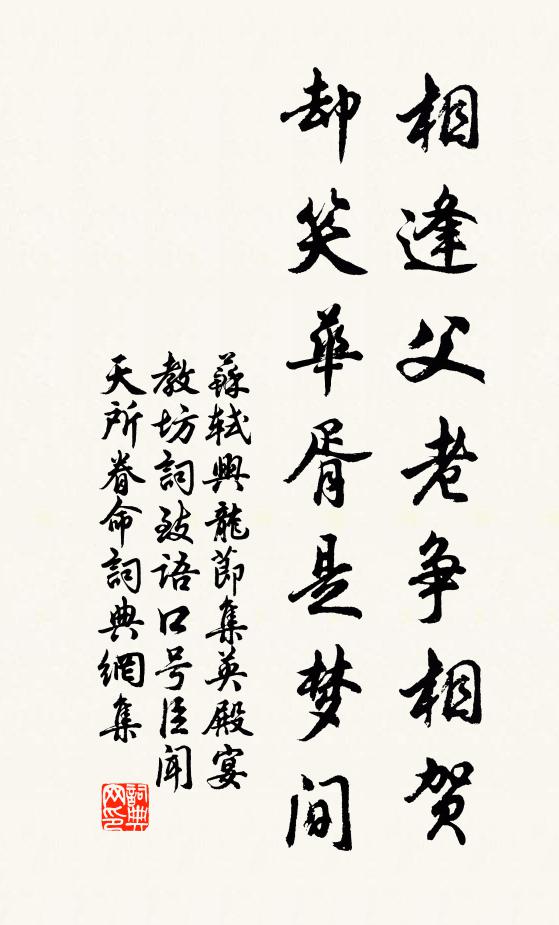 相逢父老争相贺
却笑华胥是梦间
蘇軾興龍節集英殿宴
教坊詞致语口号臣闻
天所眷命詞典網集
詞典
网印